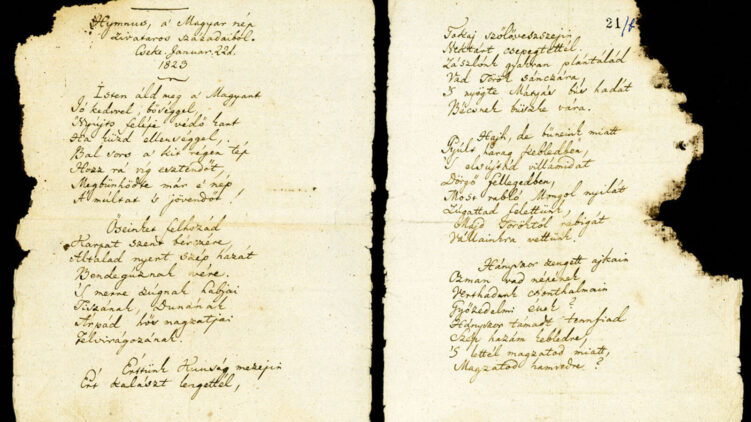 Hymnus, a' Magyar nép
zivataros századaiból.
Cseke. Januar. 22d.
1823
Isten áld meg a' Magyart
Jó kedvvel, bőséggel,
Nyújts feléje védő kart
Ha küzd ellenséggel;
Bal sors a' kit régen tép
Hozz rá víg esztendőt,
Megbünhödte már e' nép
A' múltat 's jövendőt!
Őseinket felhozád
Kárpát szent bérczére,
Általad nyert szép hazát
Bendegúznak vére.
'S merre zúgnak habjai
Tiszának, Dunának
Árpád hős magzatjai
Felvirágozának!
Értünk Kunság mezejin
Ért kalászt lengettél,
21/
Tokaj szőlővesszejin
Nektárt csepegtettél.
Zászlónk gyakran plántálád
Vad Török sánczára,
'S nyögte Mátyás bús hadát
Bécsnek büszke vára.
Hajh, de bűneink miatt
Gyúlt harag kebledben,
'S elsújtád villámidat
Dörgő fellegedben,
Most rabló Mongol nyilát
Zúgattad felettünk,
Majd Töröktől rabigát
Vállainkra vettünk.
Hányszor zengett ajkain
Ozman vad népének
Vert hadunk csonthalmain
Győzedelmi ének?
Hányszor támadt tennfiad
Szép hazám kebledre,
'S lettél magzatod miatt,
Magzatod hamvvedre?